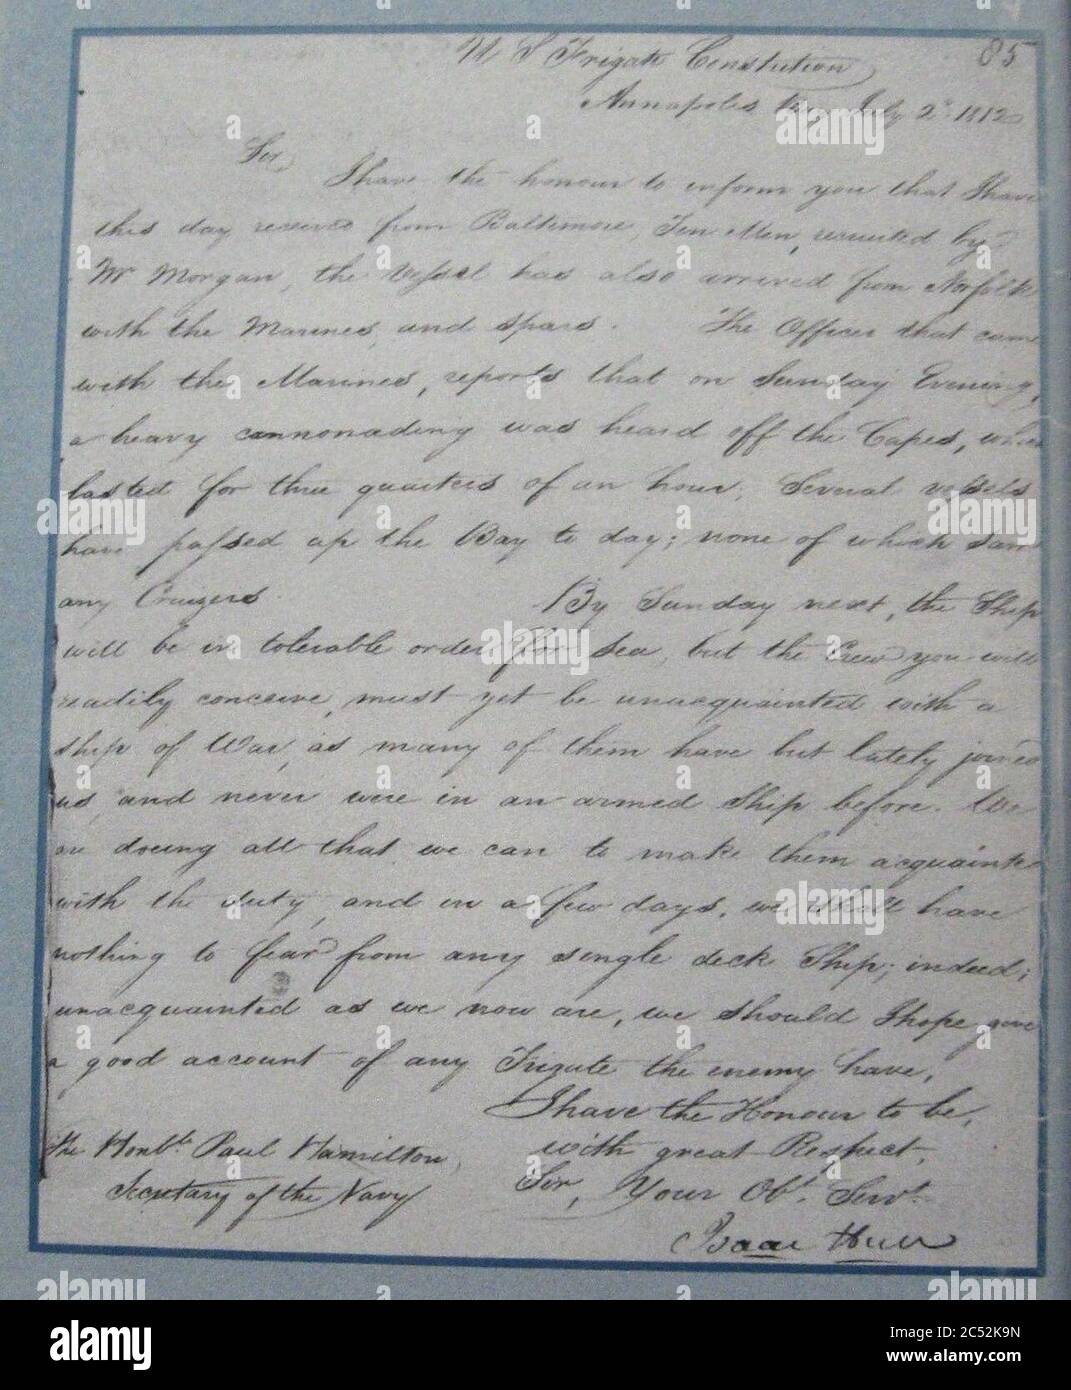 85
U S Frigate Constitution
Annapolis Bay July 2d. 1812
Sir,
I have the honour to inform you that I have
this day received from Baltimore, Ten Men, recruited by
Mr Morgan, the Vessel has also arrived from Norfolk
with the Marines, and spars. The Officer that came
with the Marines, reports that on Sunday Evening,
a heavy cannonading was heard off the Capes, which
lasted for three quarters of an hour; Several vessels
have passed up the Bay to day; none of which saw
any Cruizers. By Sunday next, the Ship
will be in tolerable order for sea, but the Crew you will
readily conceive, must yet be unacquainted with a
ship of War, as many of them have but lately joined
us, and never were in an armed Ship before. We
are doeing all that we can to make them acquainted
with the duty, and in a few days, we shall have
nothing to fear from any single deck Ship; indeed;
unacquainted as we now are, we should I hope give
a good account of any Frigate the enemy have,
I have the Honour to be,
with great Respect,
Sir, Your Obt. Servt.
Isaac Hull
The Honble. Paul Hamilton,
Secretary of the Navy
alamy
alamy
Image ID: 2C52K9N
www.alamy.com